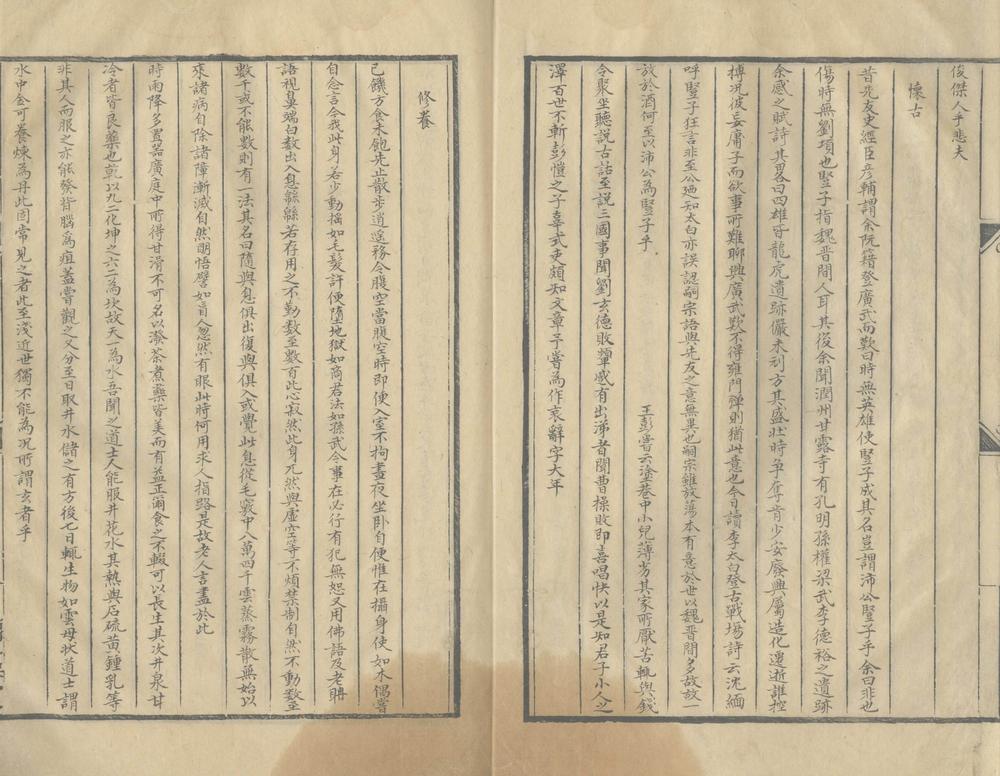 俊傑人乎悲夫
懷古
昔先友史經臣彥輔謂余阮籍登廣武而歎曰時無英雄使豎子成其名豈謂沛公豎子乎余曰非也
傷時無劉項也豎子指魏晉間人耳其後余聞潤州甘露寺有孔明孫權梁武李德裕之遺跡
余感之賦詩其畧曰四雄皆龍虎遺跡儼未刓方其盛壯時爭奪肯少安廢興屬造化遷逝誰控
摶况彼妄庸子而欲事所難聊興廣武歎不得雍門彈則猶此意也今日讀李太白登古戰場詩云沈緬
呼豎子狂言非至公廼知太白亦誤認嗣宗語與先友之意無異也嗣宗雖放蕩本有意於世以魏晉間多故故一
放於酒何至以沛公為豎子乎
王彭嘗云塗巷中小兒薄劣其家所厭苦輒與錢
令聚坐聽說古話至說三國事聞劉玄德敗顰慼有出涕者聞曹操敗即喜唱快以是知君子小人之
澤百世不斬彭愷之子辜武吏頗知文章予嘗為作哀辭字大年
修養
已饑方食未飽先止散步逍遥務令腹空當腹空時即便入室不拘晝夜坐卧自便惟在攝身使如木偶嘗
自念言今我此身若少動搖如毛髮許便墮地獄如商君法如孫武令事在必行有犯無恕又用佛語及老聃
語視鼻端白數出入息緜緜若存用之不勤數至數百此心寂然此身兀然與虛空等不煩禁制自然不動數至
數千或不能數則有一法其名曰隨與息俱出復與俱入或覺此息從毛竅中八萬四千雲蒸霧散無始以
來諸病自除諸障漸滅自然明悟譬如盲人忽然有眼此時何用求人指路是故老人言盡於此
時雨降多置器廣庭中所得甘滑不可名以潑茶煮藥皆美而有益正爾食之不輟可以長生其次井泉甘
冷者皆良藥也乾以九二化坤之六二為坎故天一為水吾聞之道士人能服井花水其熱與石硫黃鍾乳等
非其人而服之亦能發背腦為疽蓋嘗觀之又分至日取井水儲之有方後七日輒生物如雲母狀道士謂
水中金可養煉為丹此固常見之者此至淺近世獨不能為况所謂玄者乎